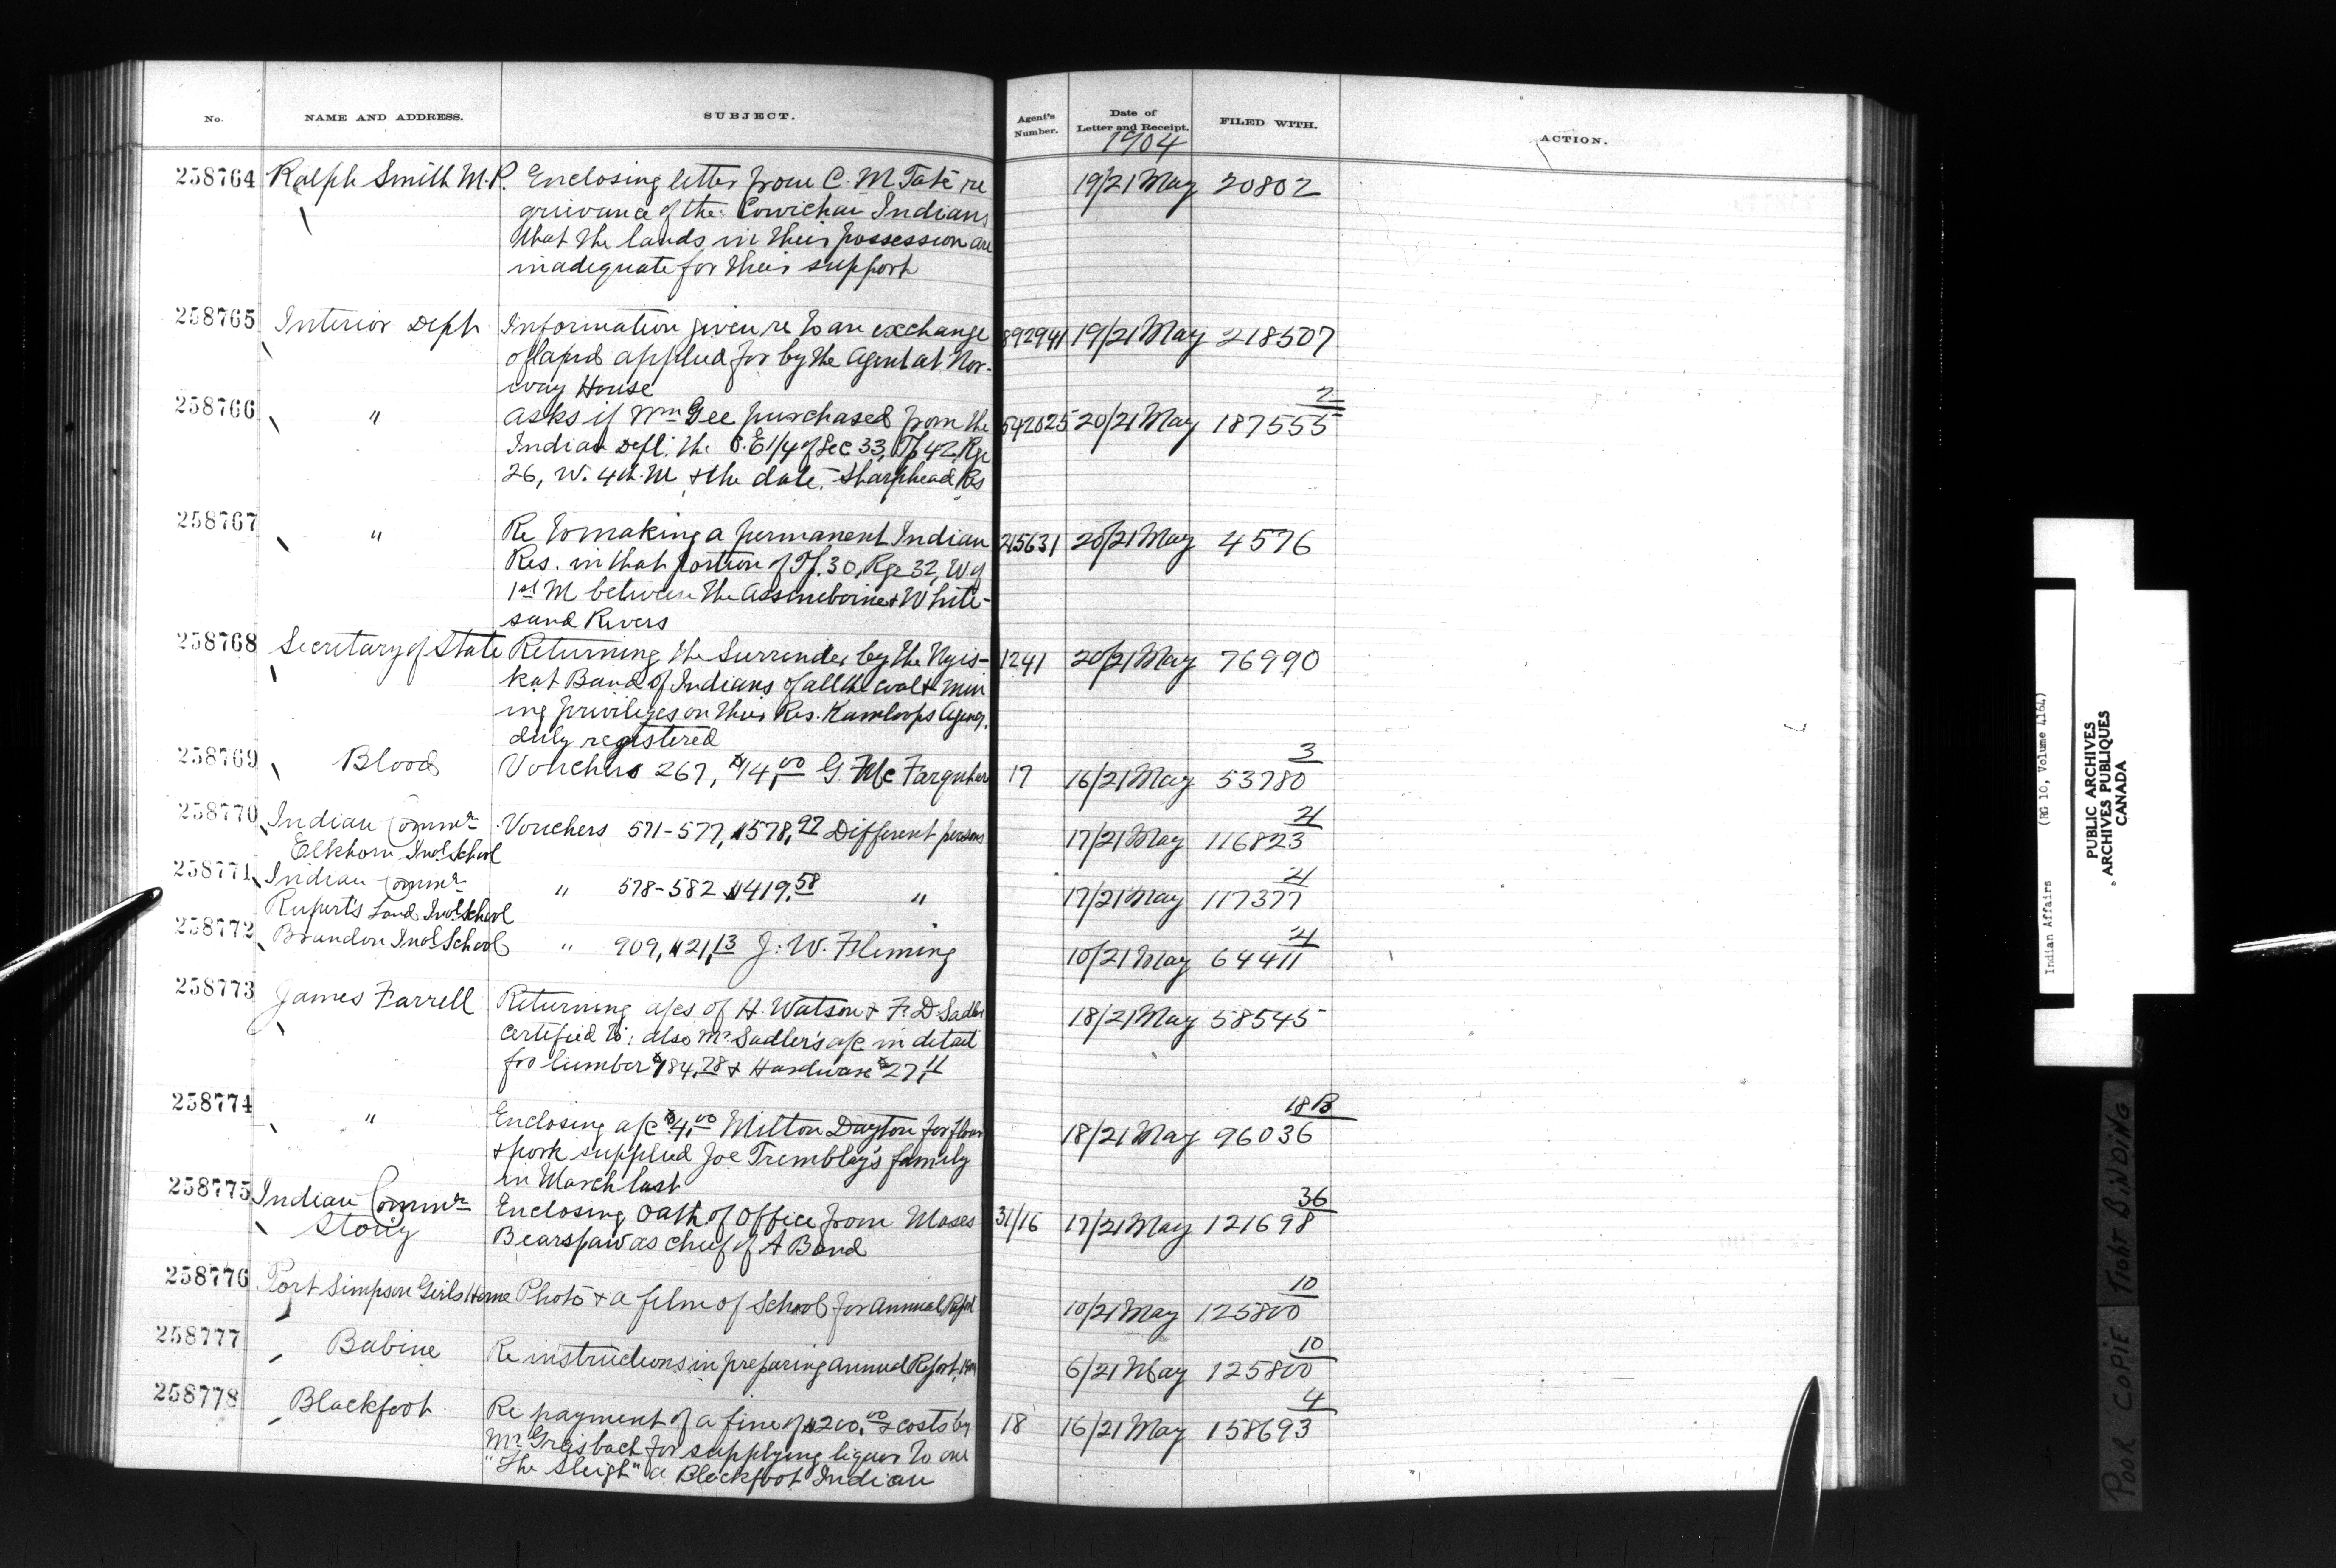 No. NAME AND ADDRESS. SUBJECT. Agent's Number. Date of Letter and Receipt. FILED WITH. ACTION.
1904
258764 Ralph Smith M.P. Enclosing letter from C. M. Tate re 19/21 May 20802
grievance of the Cowichan Indians
that the lands in their possession are
inadequate for their support
258765 Interior Dept. Information given re to an exchange 892941 19/21 May 218507
of land applied for by the Agent at Nor-
way House
258766 " asks if Wm Gee purchased from the 592025 20/21 May 187555 2
Indian Dept. the S.E 1/4 of Sec 33, Tp 42, Rge
26, W. 4th. M & the date. Sharphead Res
258767 " Re to making a permanent Indian 215631 20/21 May 4576
Res. in that portion of Tp. 30, Rge 32, W of
1st M between the Assineboine & White-
sand Rivers
258768 Secretary of State Returning the Surrender by the Nyis- 1241 20/21 May 76990
kat Band of Indians of all the coal & min
ing privileges on their Res. Kamloops Agency.
duly registered
258769 Blood Vouchers 267, $14,00 G. McFarquhar 17 16/21 May 53780 3
258770 Indian Commr Vouchers 571-577, $578,97 Different persons 17/21 May 116823 21
Elkhorn Indl School
258771 Indian Commr " 578-582 $419,58 " 17/21 May 117377 21
Rupert's Land Indl School
258772 Brandon Indl School " 909, $21,13 J. W. Fleming 10/21 May 64411 21
258773 James Farrell Returning a/cs of H. Watson & F. D. Sadler 18/21 May 58545
certified to; also Mr Sadler's a/c in detail
for lumber $184,28 & Hardware $27,11
258774 " Enclosing a/c $4,00 Milton Dayton for flour 18/21 May 96036 18B
& pork supplied Joe Tremblay's family
in March last
258775 Indian Commr Enclosing Oath of Office from Moses 31/16 17/21 May 121698 36
Stony Bearspaw as chief of A Band
258776 Port Simpson Girls Home Photo & a film of School for Annual Report 10/21 May 125800 10
258777 Babine Re instructions in preparing Annual Report, 1904 6/21 May 125800 10
258778 Blackfoot Re payment of a fine of $200,00 & costs by 18 16/21 May 158693 4
Mr Greisbach for supplying liquor to one
"The Sleigh" a Blackfoot Indian
Indian Affairs (RG 10, Volume 4164)
PUBLIC ARCHIVES
ARCHIVES PUBLIQUES
CANADA
POOR COPIE TIGHT BINDING